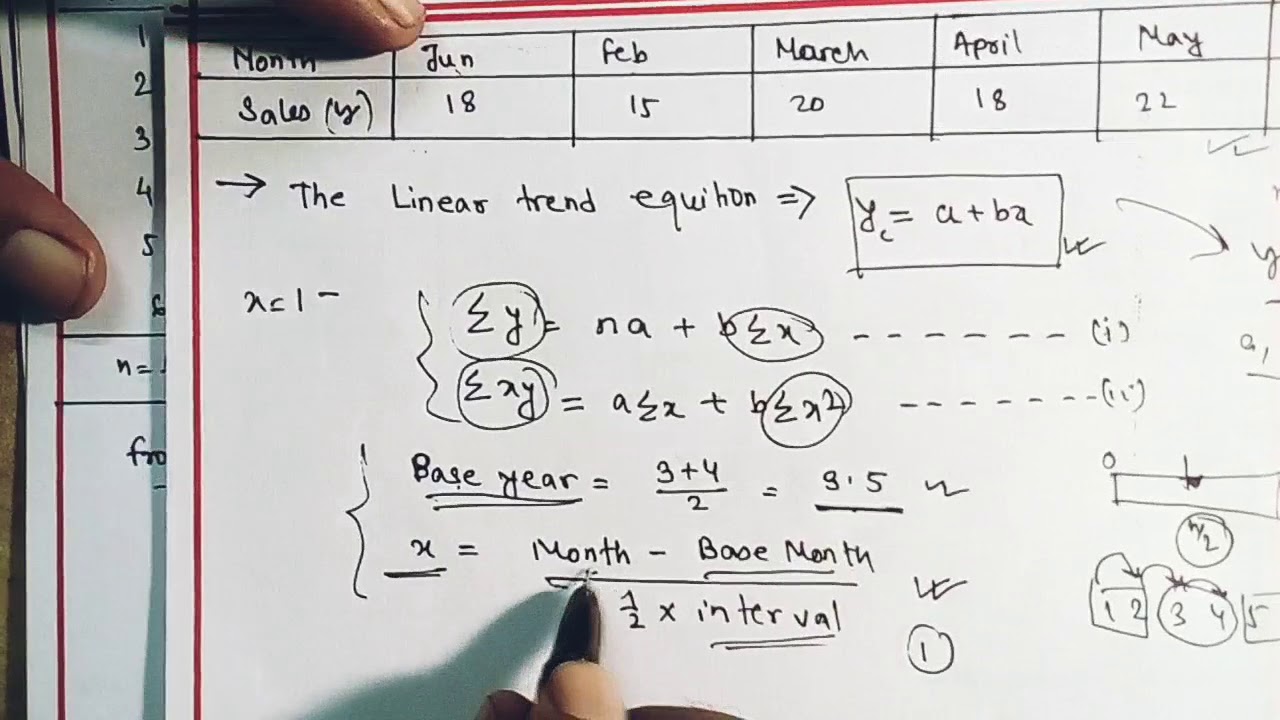 Month Jun Feb March April May
Sales (y) 18 15 20 18 22
→ The Linear trend equition ⇒ y_c = a + bx
x = 1 -
Σy = na + bΣx ------- (i)
Σxy = aΣx + bΣx² ------- (ii)
Base year = 3+4/2 = 3.5
x = Month - Base Month
½ x interval
1
0
n/2
1 2 3 4 5
1
2
3
4
5
6
n=
fro
y
a,